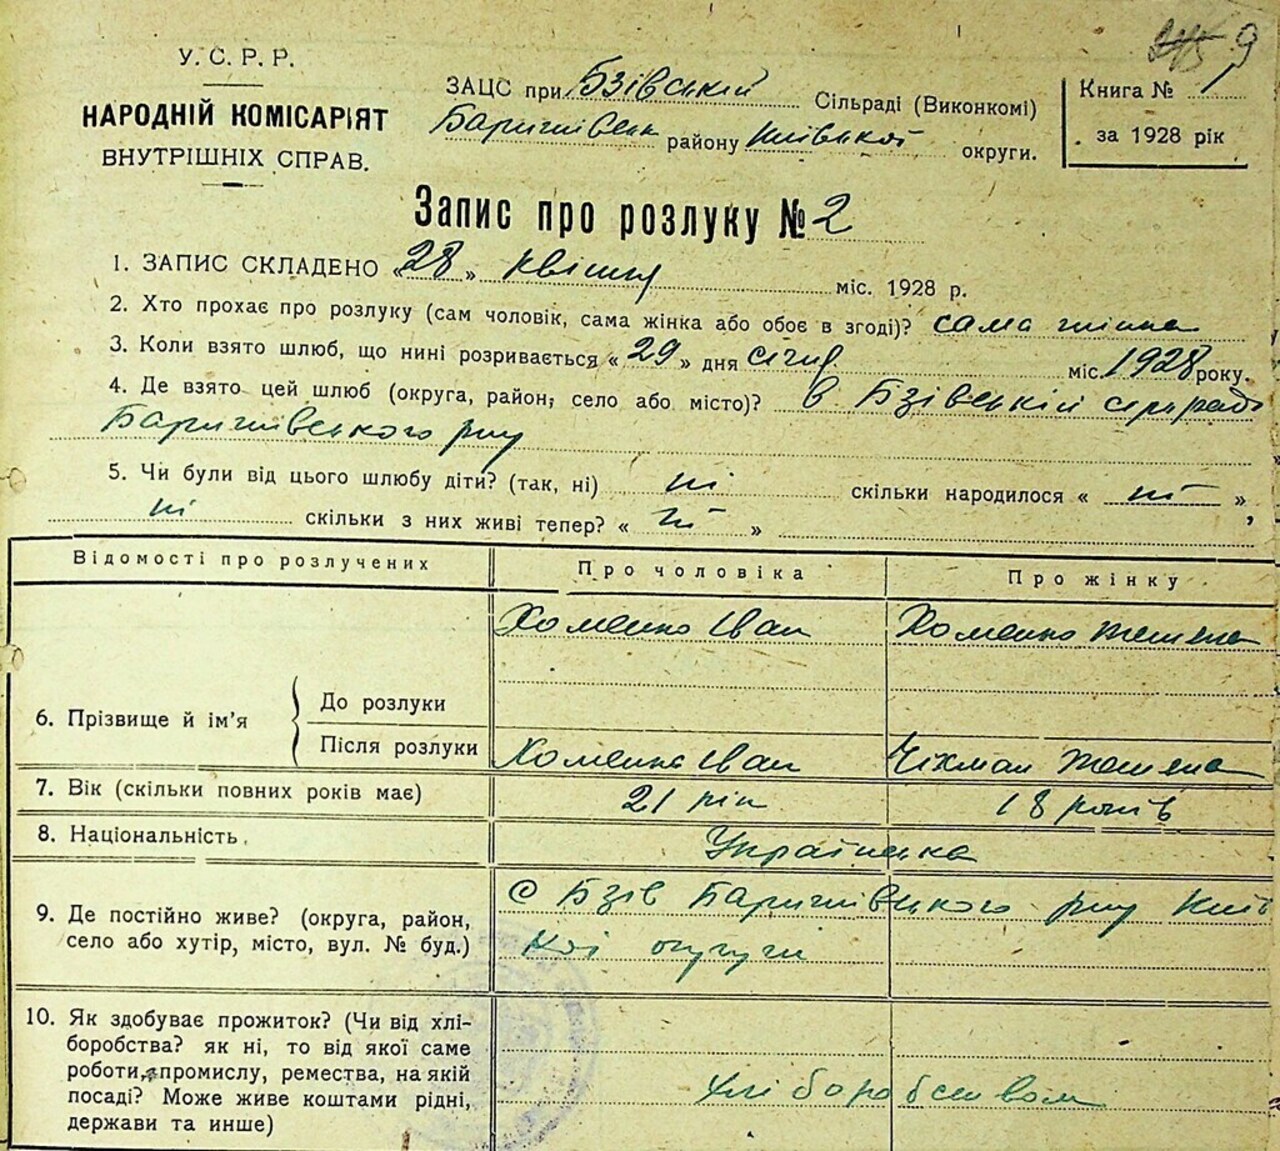 9
У. С. Р. Р.
НАРОДНІЙ КОМІСАРІЯТ
ВНУТРІШНІХ СПРАВ.
ЗАЦС при Бзівській Сільраді (Виконкомі)
Баришівськ району Київської округи.
Книга № 1
за 1928 рік
Запис про розлуку № 2
1. ЗАПИС СКЛАДЕНО «28» квітня міс. 1928 р.
2. Хто прохає про розлуку (сам чоловік, сама жінка або обоє в згоді)? сама жінка
3. Коли взято шлюб, що нині розривається «29» дня січня міс. 1928 року.
4. Де взято цей шлюб (округа, район, село або місто)? в Бзівській сільраді
Баришівського р-ну
5. Чи були від цього шлюбу діти? (так, ні) ні скільки народилося « ні »,
ні скільки з них живі тепер? « ні »
Відомості про розлучених Про чоловіка Про жінку
Хоменко Іван Хоменко
6. Прізвище й ім'я До розлуки
Після розлуки Хоменко Іван
7. Вік (скільки повних років має) 21 рік 18 років
8. Національність Українська
9. Де постійно живе? (округа, район,
село або хутір, місто, вул. № буд.)
с Бзів Баришівського р-ну Київ
кої округи
10. Як здобуває прожиток? (Чи від хлі-
боробства? як ні, то від якої саме
роботи, промислу, ремества, на якій
посаді? Може живе коштами рідні,
держави та инше)
Хліборобством